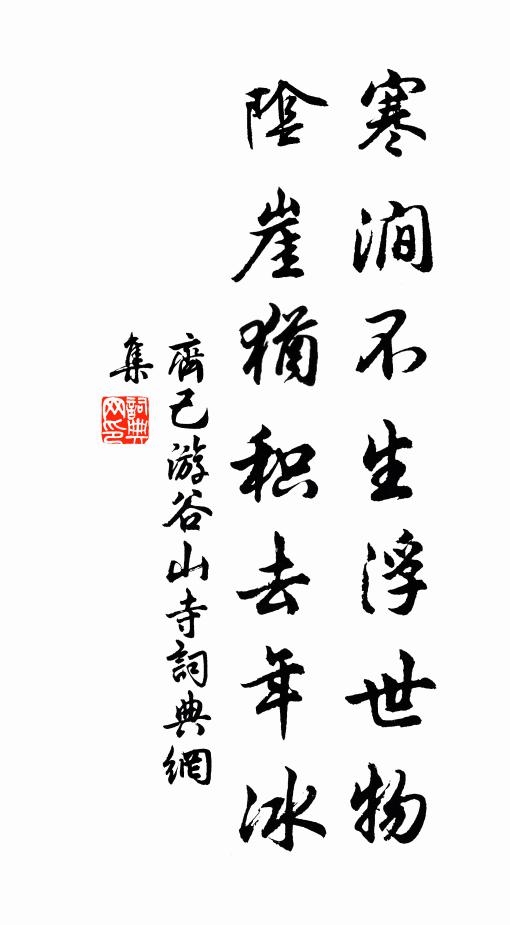 寒澗不生浮世物
陰崖猶积去年冰
齊己游谷山寺詞典網
集
詞典
网印